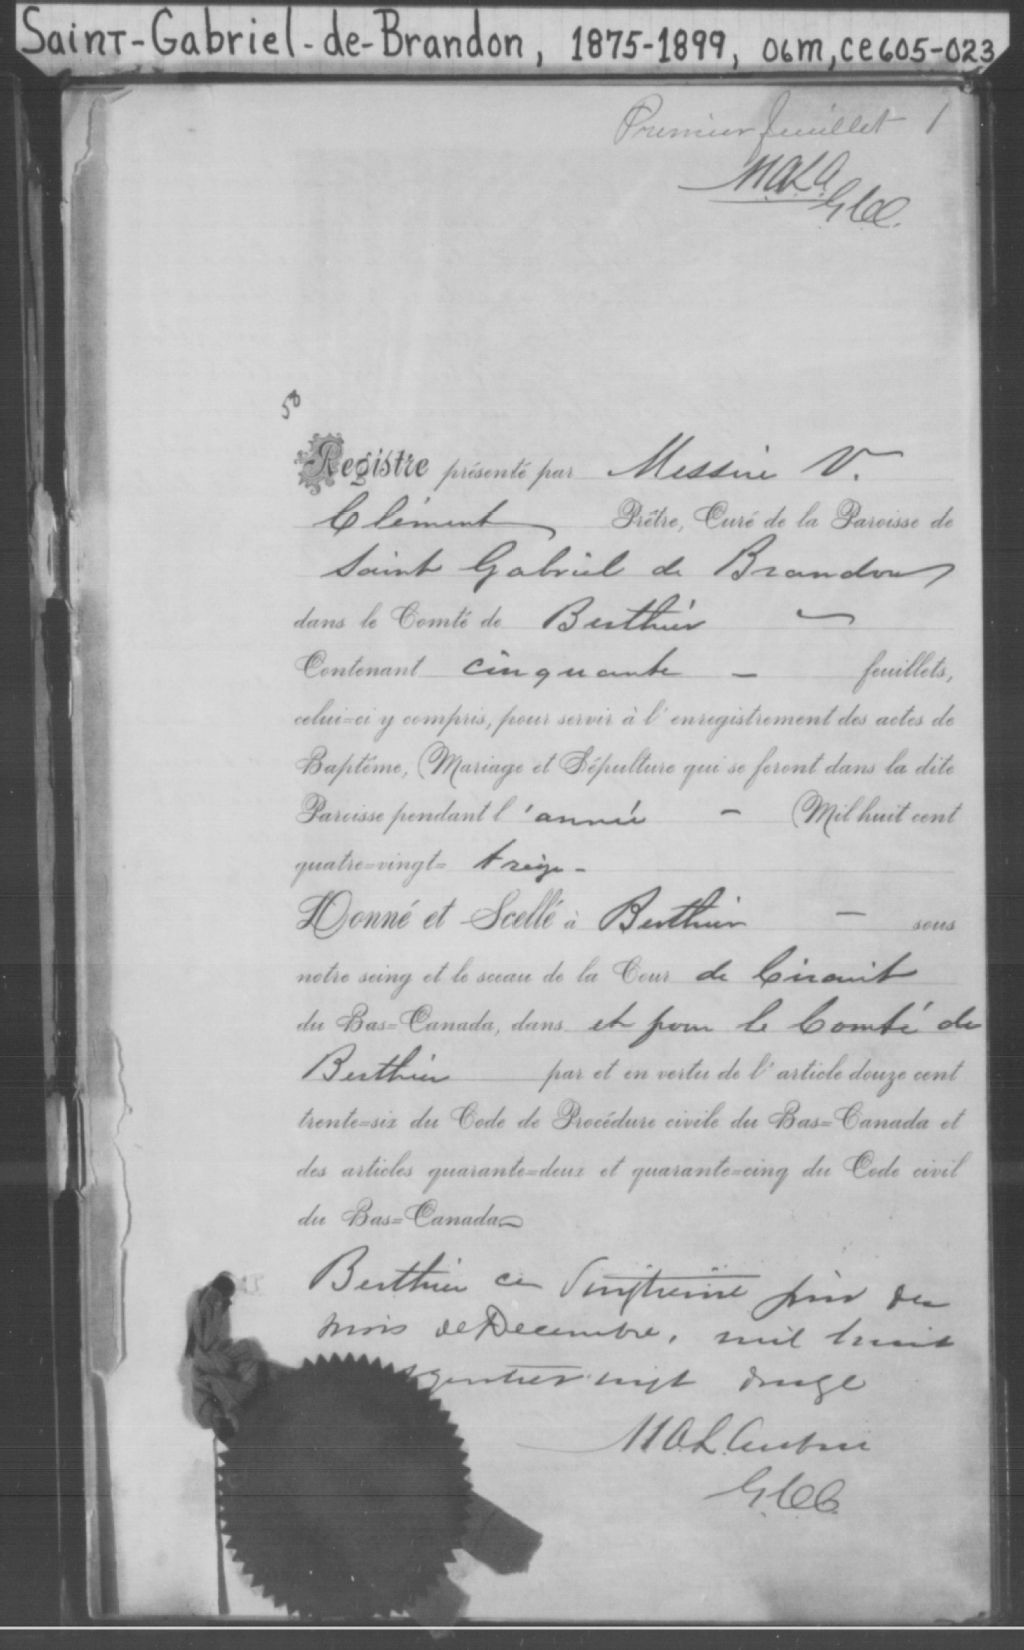 Saint-Gabriel-de-Brandon, 1875-1899, 06m, ce605-023
Premier feuillet 1
M.A.L.A.
G.C.C.
50
Registre présenté par Messire V.
Clément Prêtre, Curé de la Paroisse de
Saint Gabriel de Brandon
dans le Comté de Berthier
Contenant cinquante - feuillets,
celui-ci y compris, pour servir à l'enregistrement des actes de
Baptême, Mariage et Sépulture qui se feront dans la dite
Paroisse pendant l'année - Mil huit cent
quatre-vingt- treize -
Donné et Scellé à Berthier - sous
notre seing et le sceau de la Cour de Circuit
du Bas-Canada, dans et pour le Comté de
Berthier par et en vertu de l'article douze cent
trente-six du Code de Procédure civile du Bas-Canada et
des articles quarante-deux et quarante-cinq du Code civil
du Bas-Canada
Berthier ce jour du
mois de Decembre, mil huit
quatre vingt douze
M.A.L.
G.C.C.